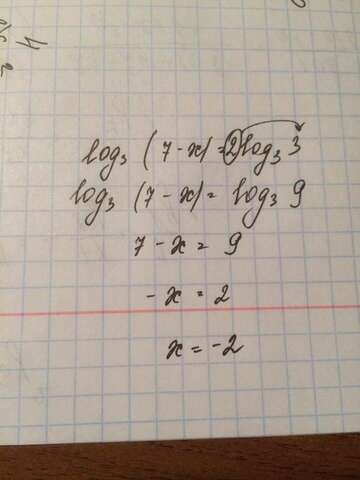 log₃ (7-x) = 2 log₃ 3
log₃ (7-x) = log₃ 9
7-x = 9
-x = 2
x = -2